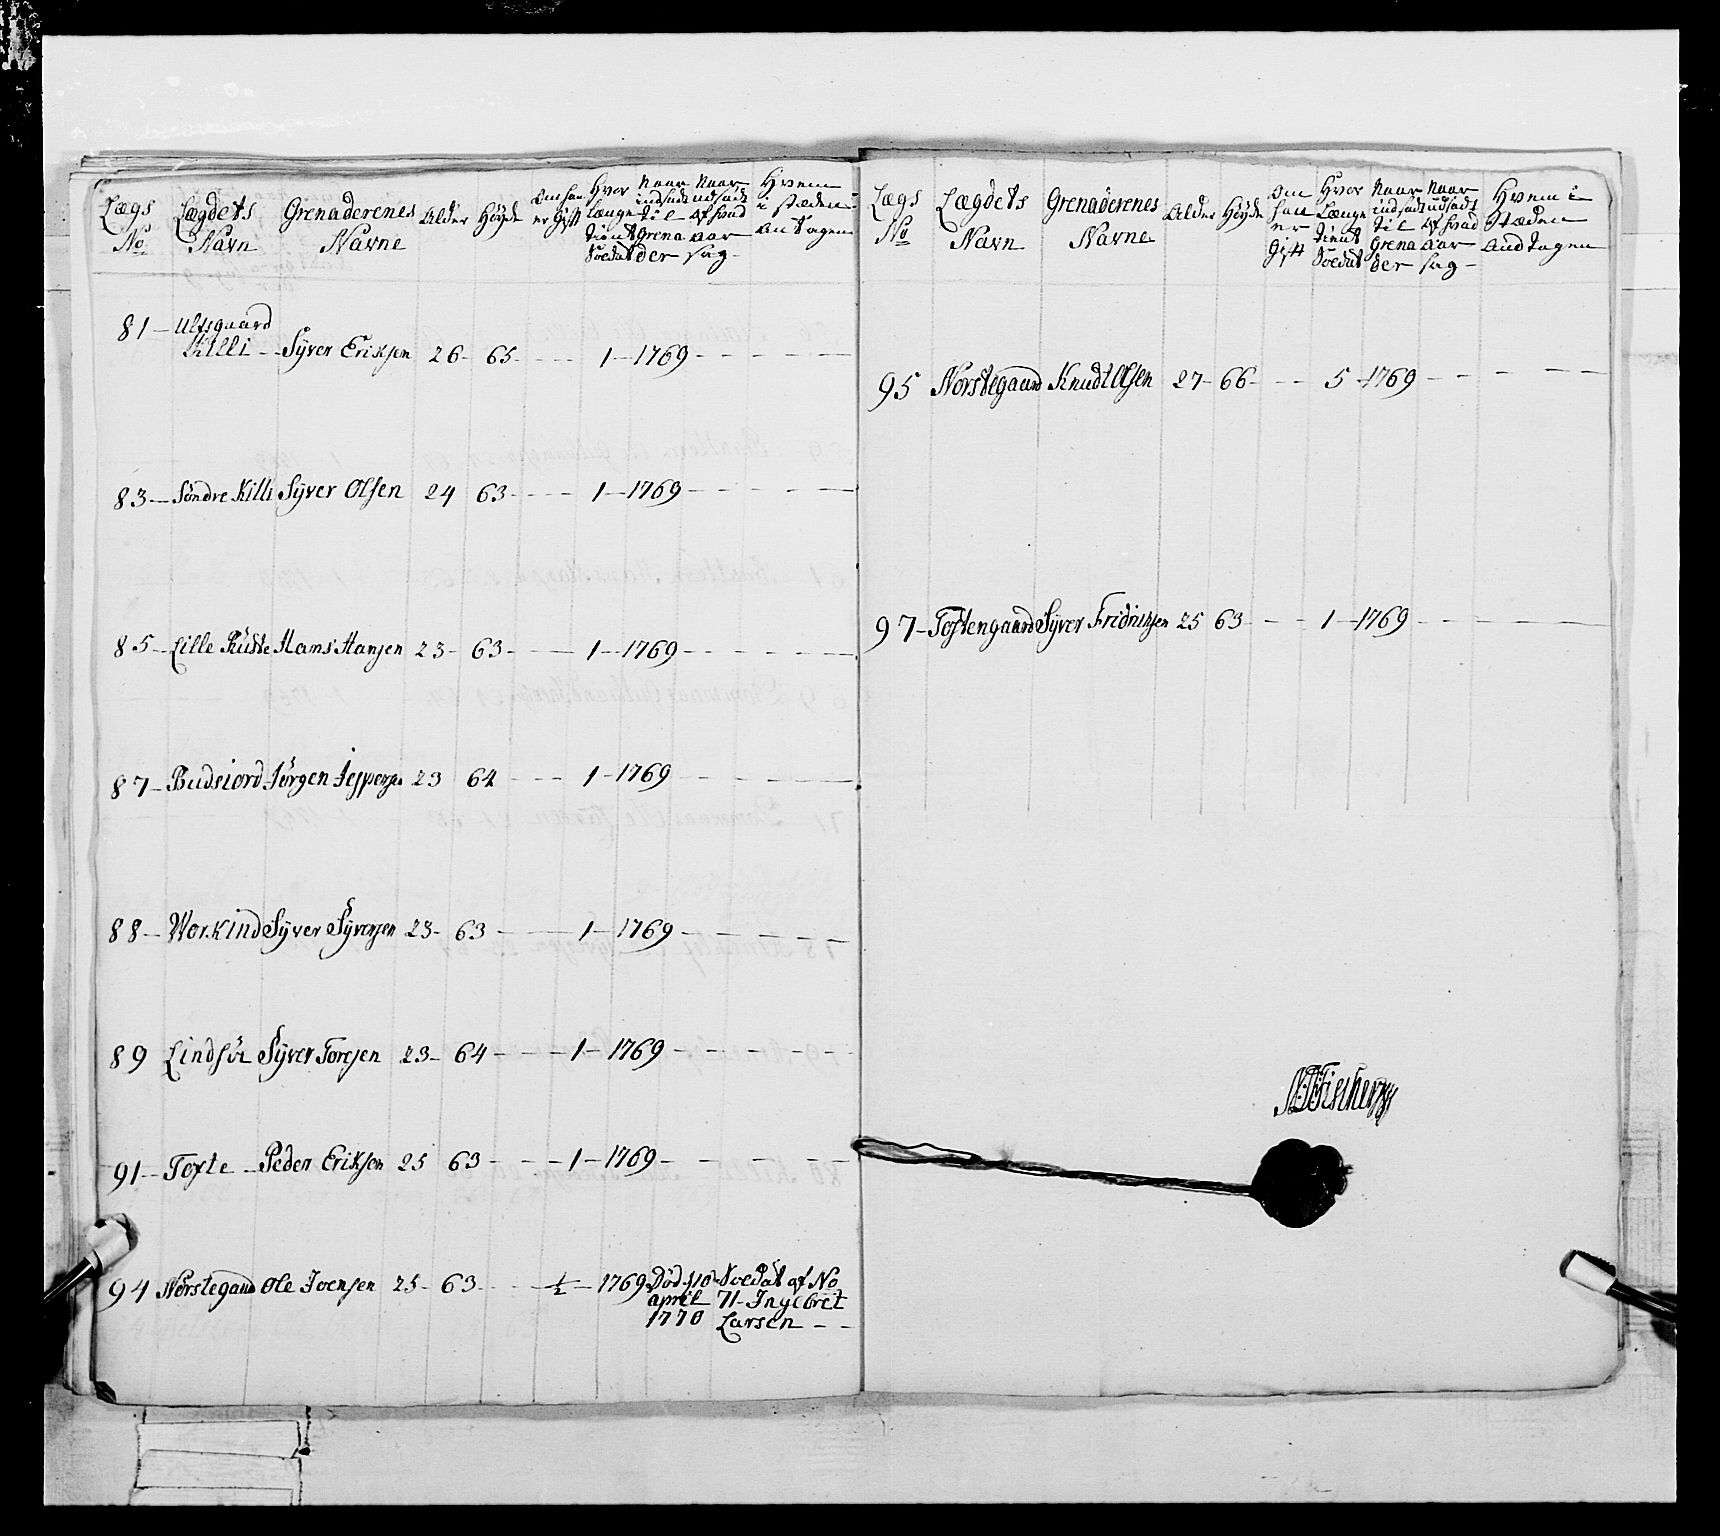 Lægs No | Lægdets Navn | Grenaderenes Navne | Alder | Höyde | Om han er Gift | Hvor Længe tient Soldat | Naar indsadt til Grenader | Naar udsadt Af hvad Aar sag | Hvem i stæden Antagen
81 Ulfsgaard
Killi Syver Eriksen 26 65 1 1769
83 Söndre Killi Syver Olsen 24 63 1 1769
85 Lille Rüste Hans Hansen 23 63 1 1769
87 Budsiord Jörgen Jespersen 23 64 1 1769
88 Workind Syver Syversen 23 63 1 1769
89 Lindsöe Syver Toresen 23 64 1 1769
91 Tofte Peder Eriksen 25 63 1 1769
94 Norstegaard Ole Joensen 25 63 1/2 1769 Död d 10 Soldat af No
april 71 Ingebret
1770 Larsen
Lægs No | Lægdets Navn | Grenaderenes Navne | Alder | Höyde | Om han er Gift | Hvor Længe tient Soldat | Naar indsadt til Grenader | Naar udsadt Af hvad Aar sag | Hvem i Stæden Andtagen
95 Norstegaard Knudt Olsen 27 66 5 1769
97 Toftengaard Syver Fridrichsen 25 63 1 1769
Fischer